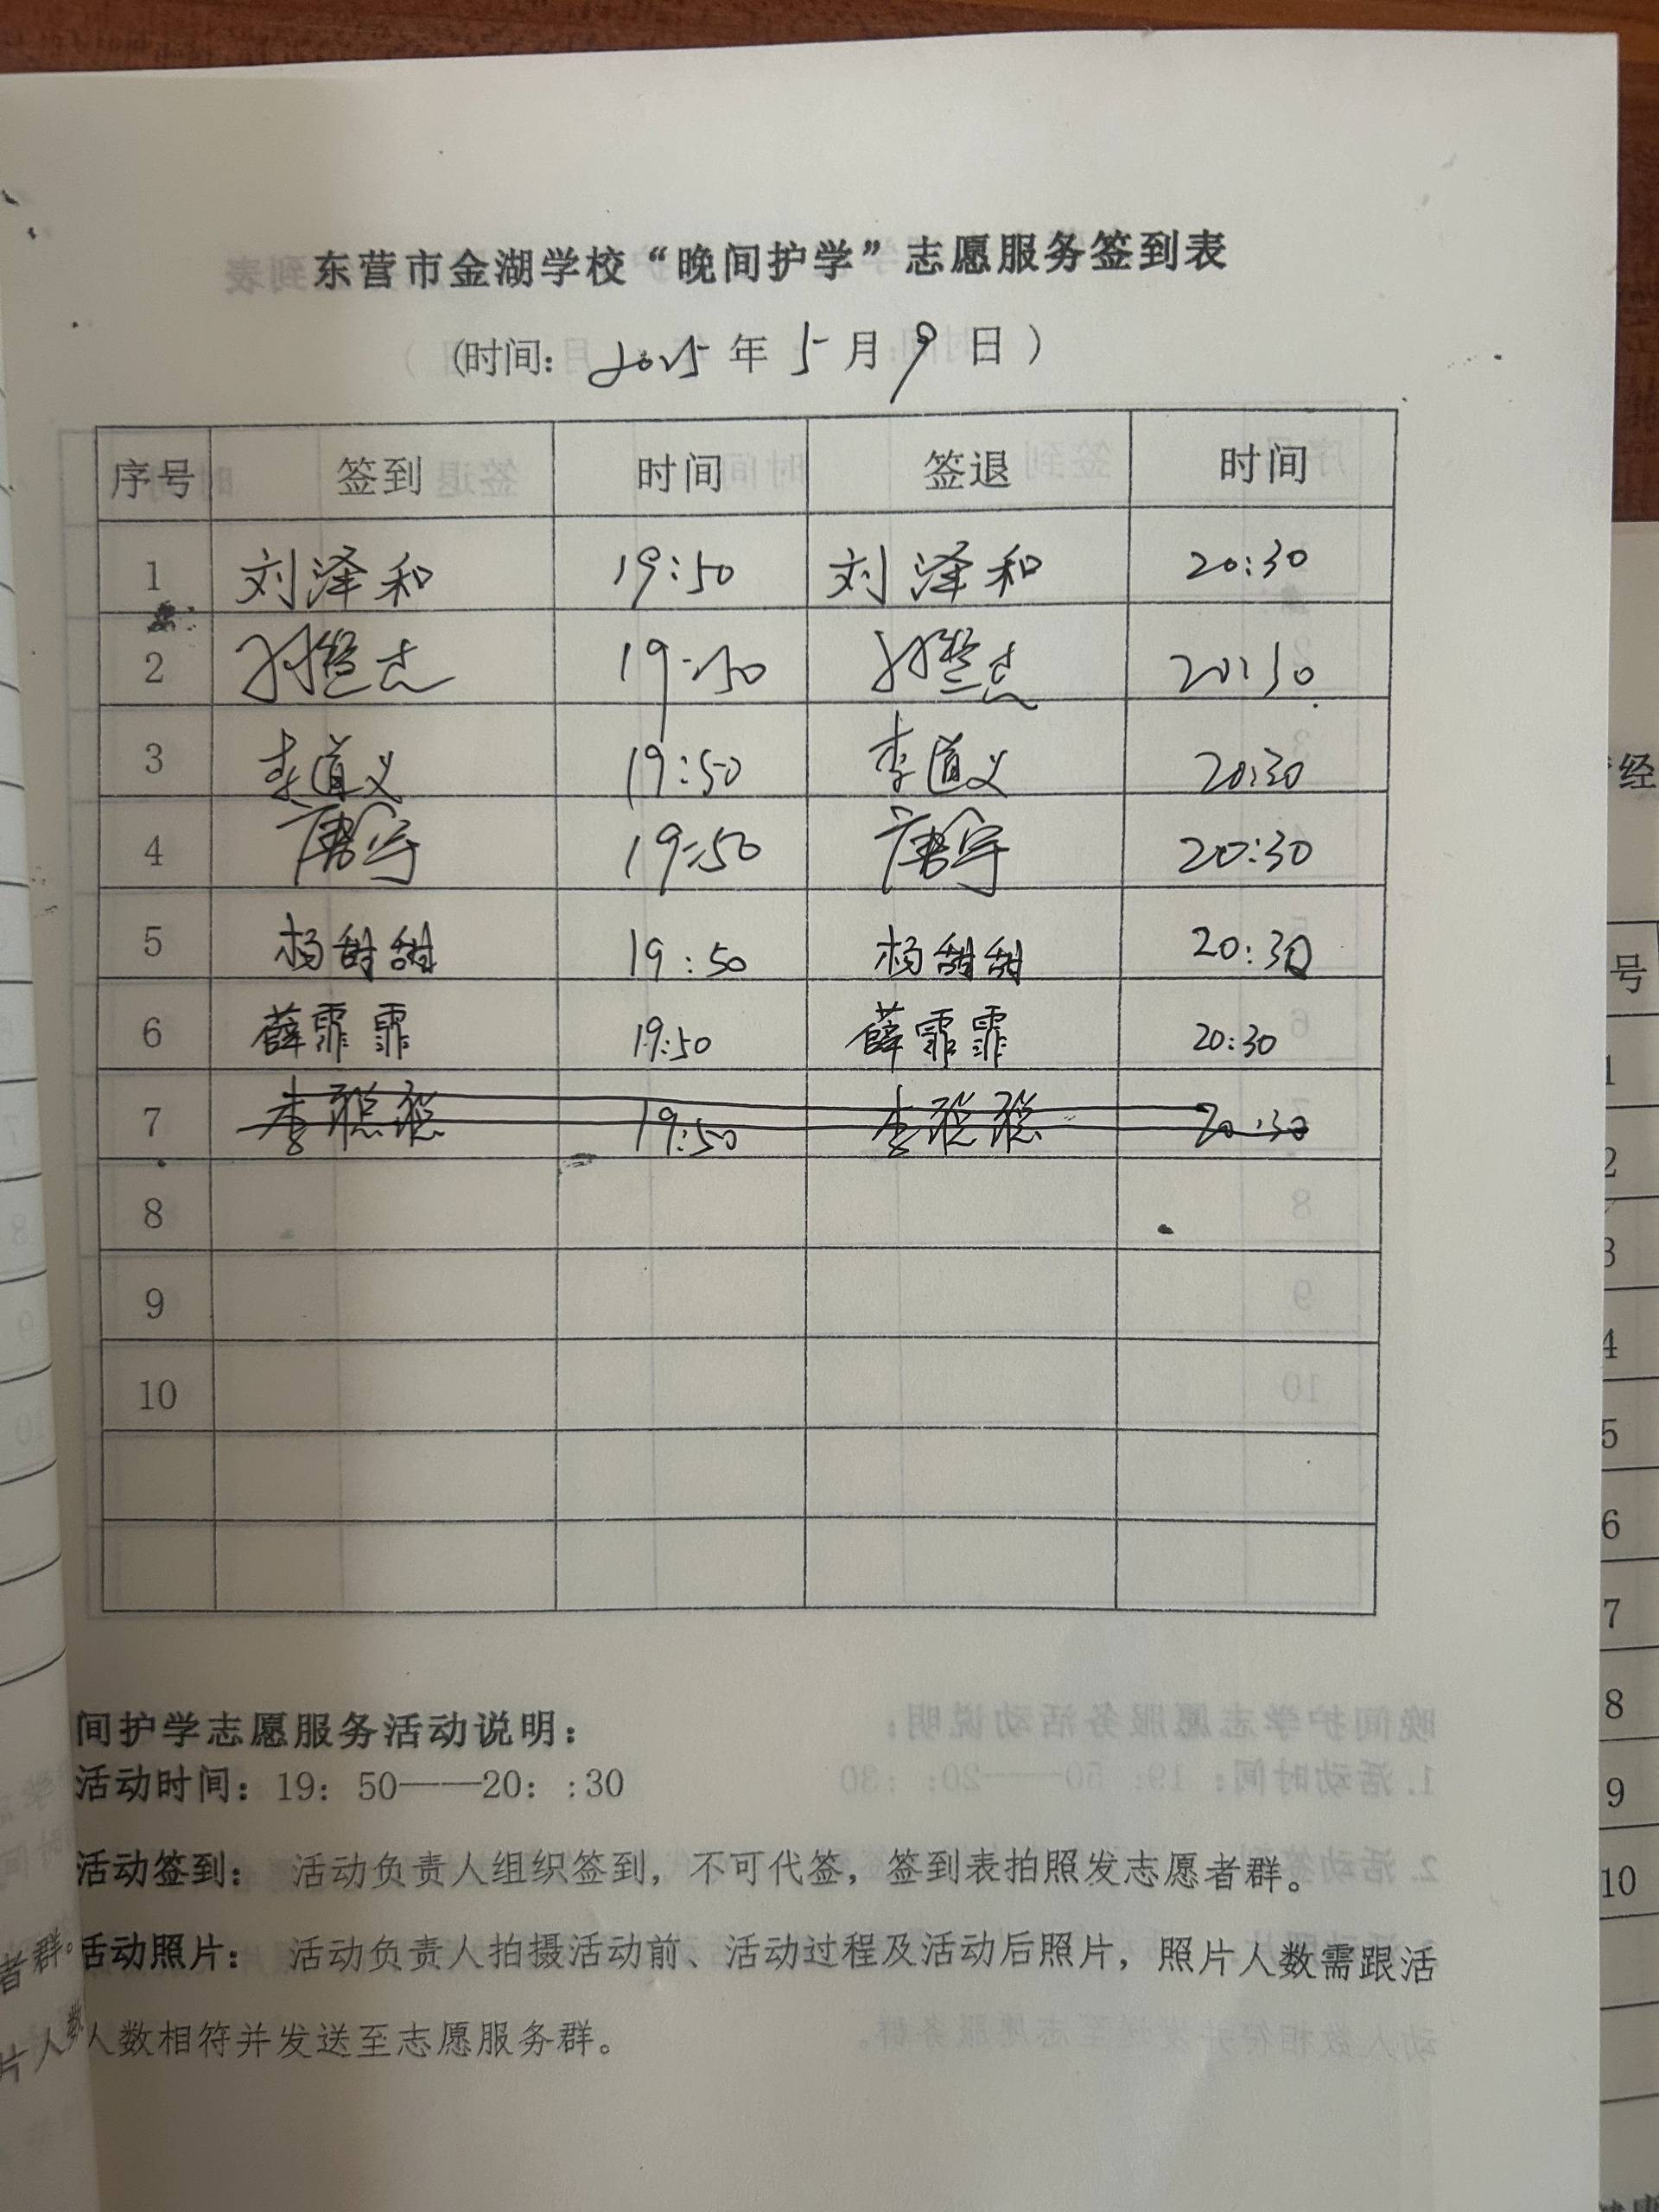 东营市金湖学校“晚间护学”志愿服务签到表
(时间: 2025 年 5 月 9 日 )
序号 签到 时间 签退 时间
1 刘泽和 19:50 刘泽和 20:30
2 19:50 20:30
3 李道义 19:50 李道义 20:30
4 19:50 20:30
5 杨甜甜 19:50 杨甜甜 20:30
6 薛霏霏 19:50 薛霏霏 20:30
7 李聪聪 19:50 李聪聪 20:30
8
9
10
间护学志愿服务活动说明:
活动时间: 19: 50——20: :30
活动签到: 活动负责人组织签到, 不可代签, 签到表拍照发志愿者群。
活动照片: 活动负责人拍摄活动前、活动过程及活动后照片, 照片人数需跟活
人数相符并发送至志愿服务群。
者群。
片人数
经
号
1
2
3
4
5
6
7
8
9
10